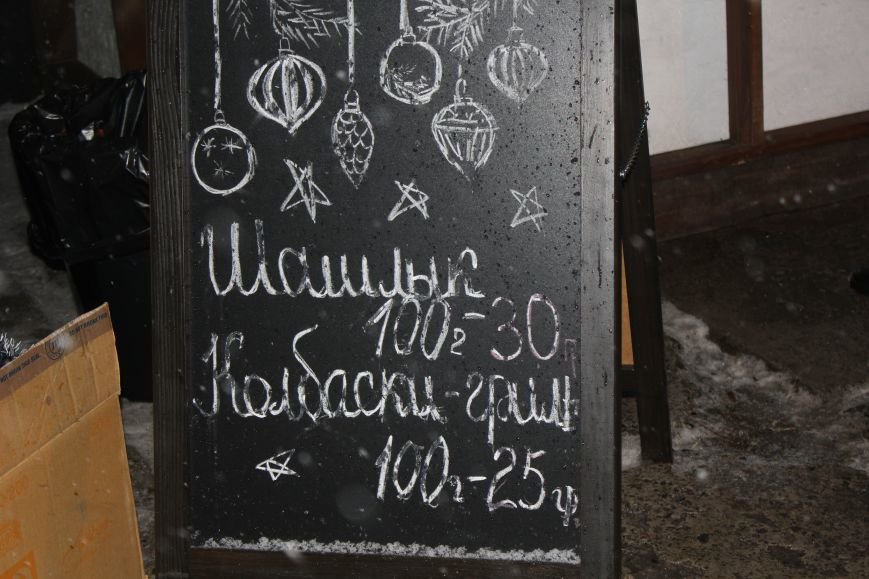 Шашлык
100г-30г
Колбаски-грил
100г-25г